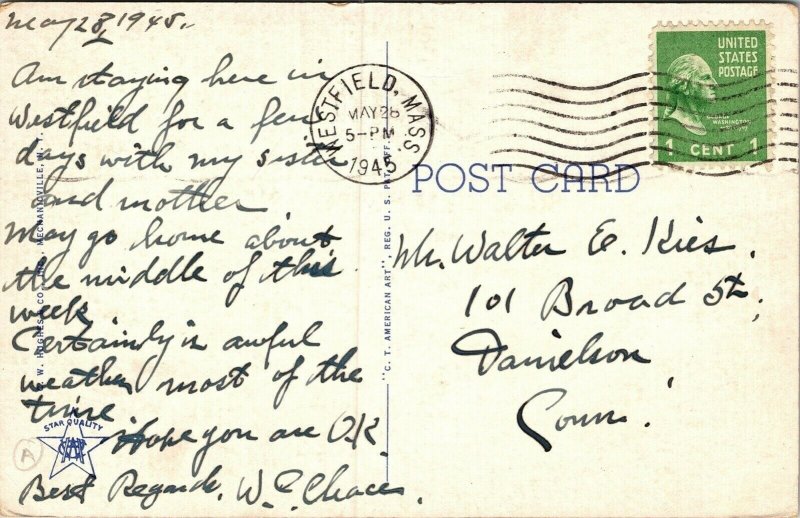 May 28, 1945.
Am staying here in
Westfield for a few
days with my sister
and mother
May go home about
the middle of this
week
Certainly is awful
weather most of the
time
Hope you are OK
Best Regards, W. E. Chace.
WESTFIELD, MASS.
MAY 28
5-PM
1945
UNITED
STATES
POSTAGE
GEORGE
WASHINGTON
1 CENT 1
POST CARD
Mr. Walter E. Kies.
101 Broad St,
Danielson
Conn.
"C. T. AMERICAN ART", REG. U. S. PAT. OFF.
MECHANICVILLE, N. Y.
STAR QUALITY
A